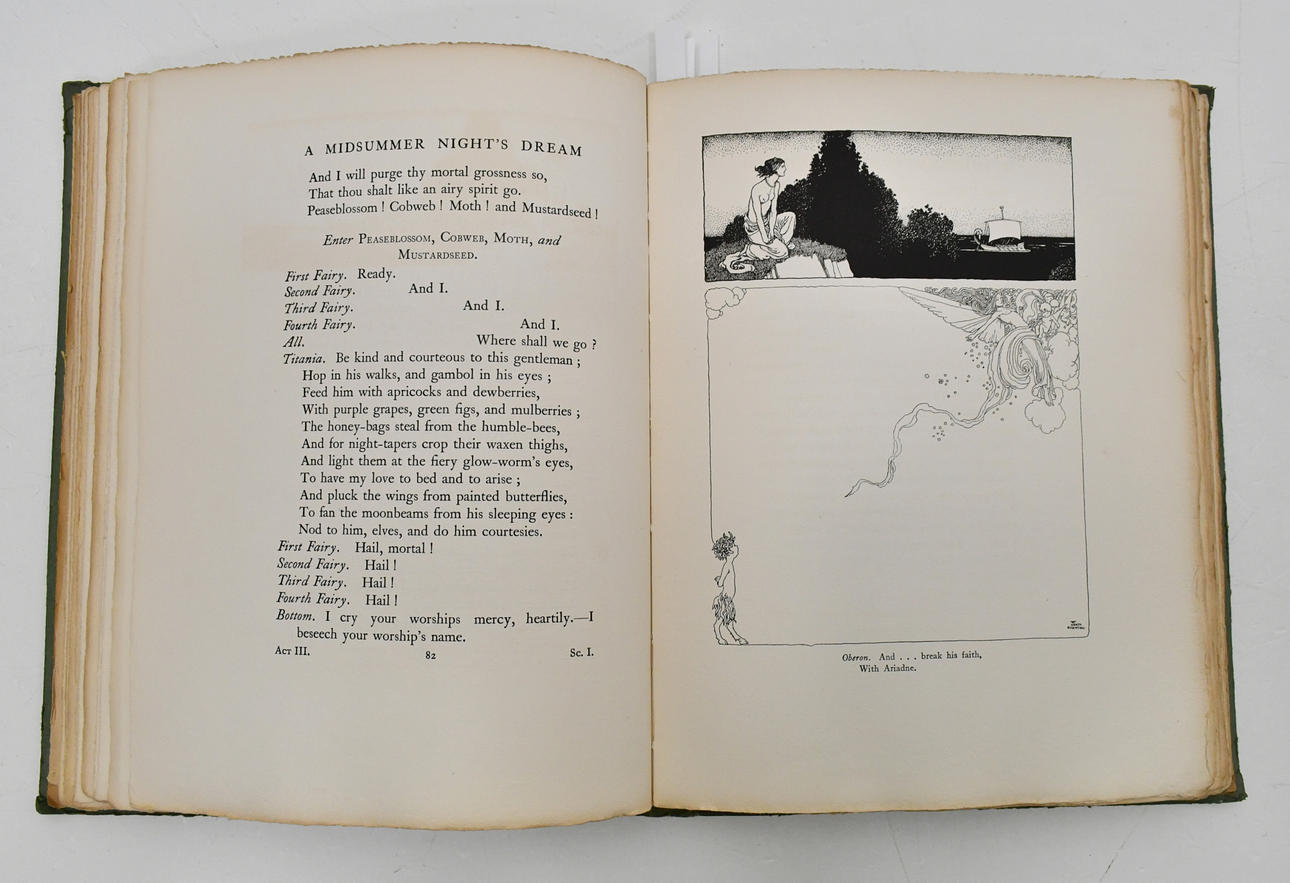 A MIDSUMMER NIGHT'S DREAM
And I will purge thy mortal grossness so,
That thou shalt like an airy spirit go.
Peaseblossom ! Cobweb ! Moth ! and Mustardseed !
Enter PEASEBLOSSOM, COBWEB, MOTH, and
MUSTARDSEED.
First Fairy. Ready.
Second Fairy. And I.
Third Fairy. And I.
Fourth Fairy. And I.
All. Where shall we go ?
Titania. Be kind and courteous to this gentleman ;
Hop in his walks, and gambol in his eyes ;
Feed him with apricocks and dewberries,
With purple grapes, green figs, and mulberries ;
The honey-bags steal from the humble-bees,
And for night-tapers crop their waxen thighs,
And light them at the fiery glow-worm's eyes,
To have my love to bed and to arise ;
And pluck the wings from painted butterflies,
To fan the moonbeams from his sleeping eyes :
Nod to him, elves, and do him courtesies.
First Fairy. Hail, mortal !
Second Fairy. Hail !
Third Fairy. Hail !
Fourth Fairy. Hail !
Bottom. I cry your worships mercy, heartily.—I
beseech your worship's name.
ACT III. 82 Sc. I.
Oberon. And . . . break his faith,
With Ariadne.